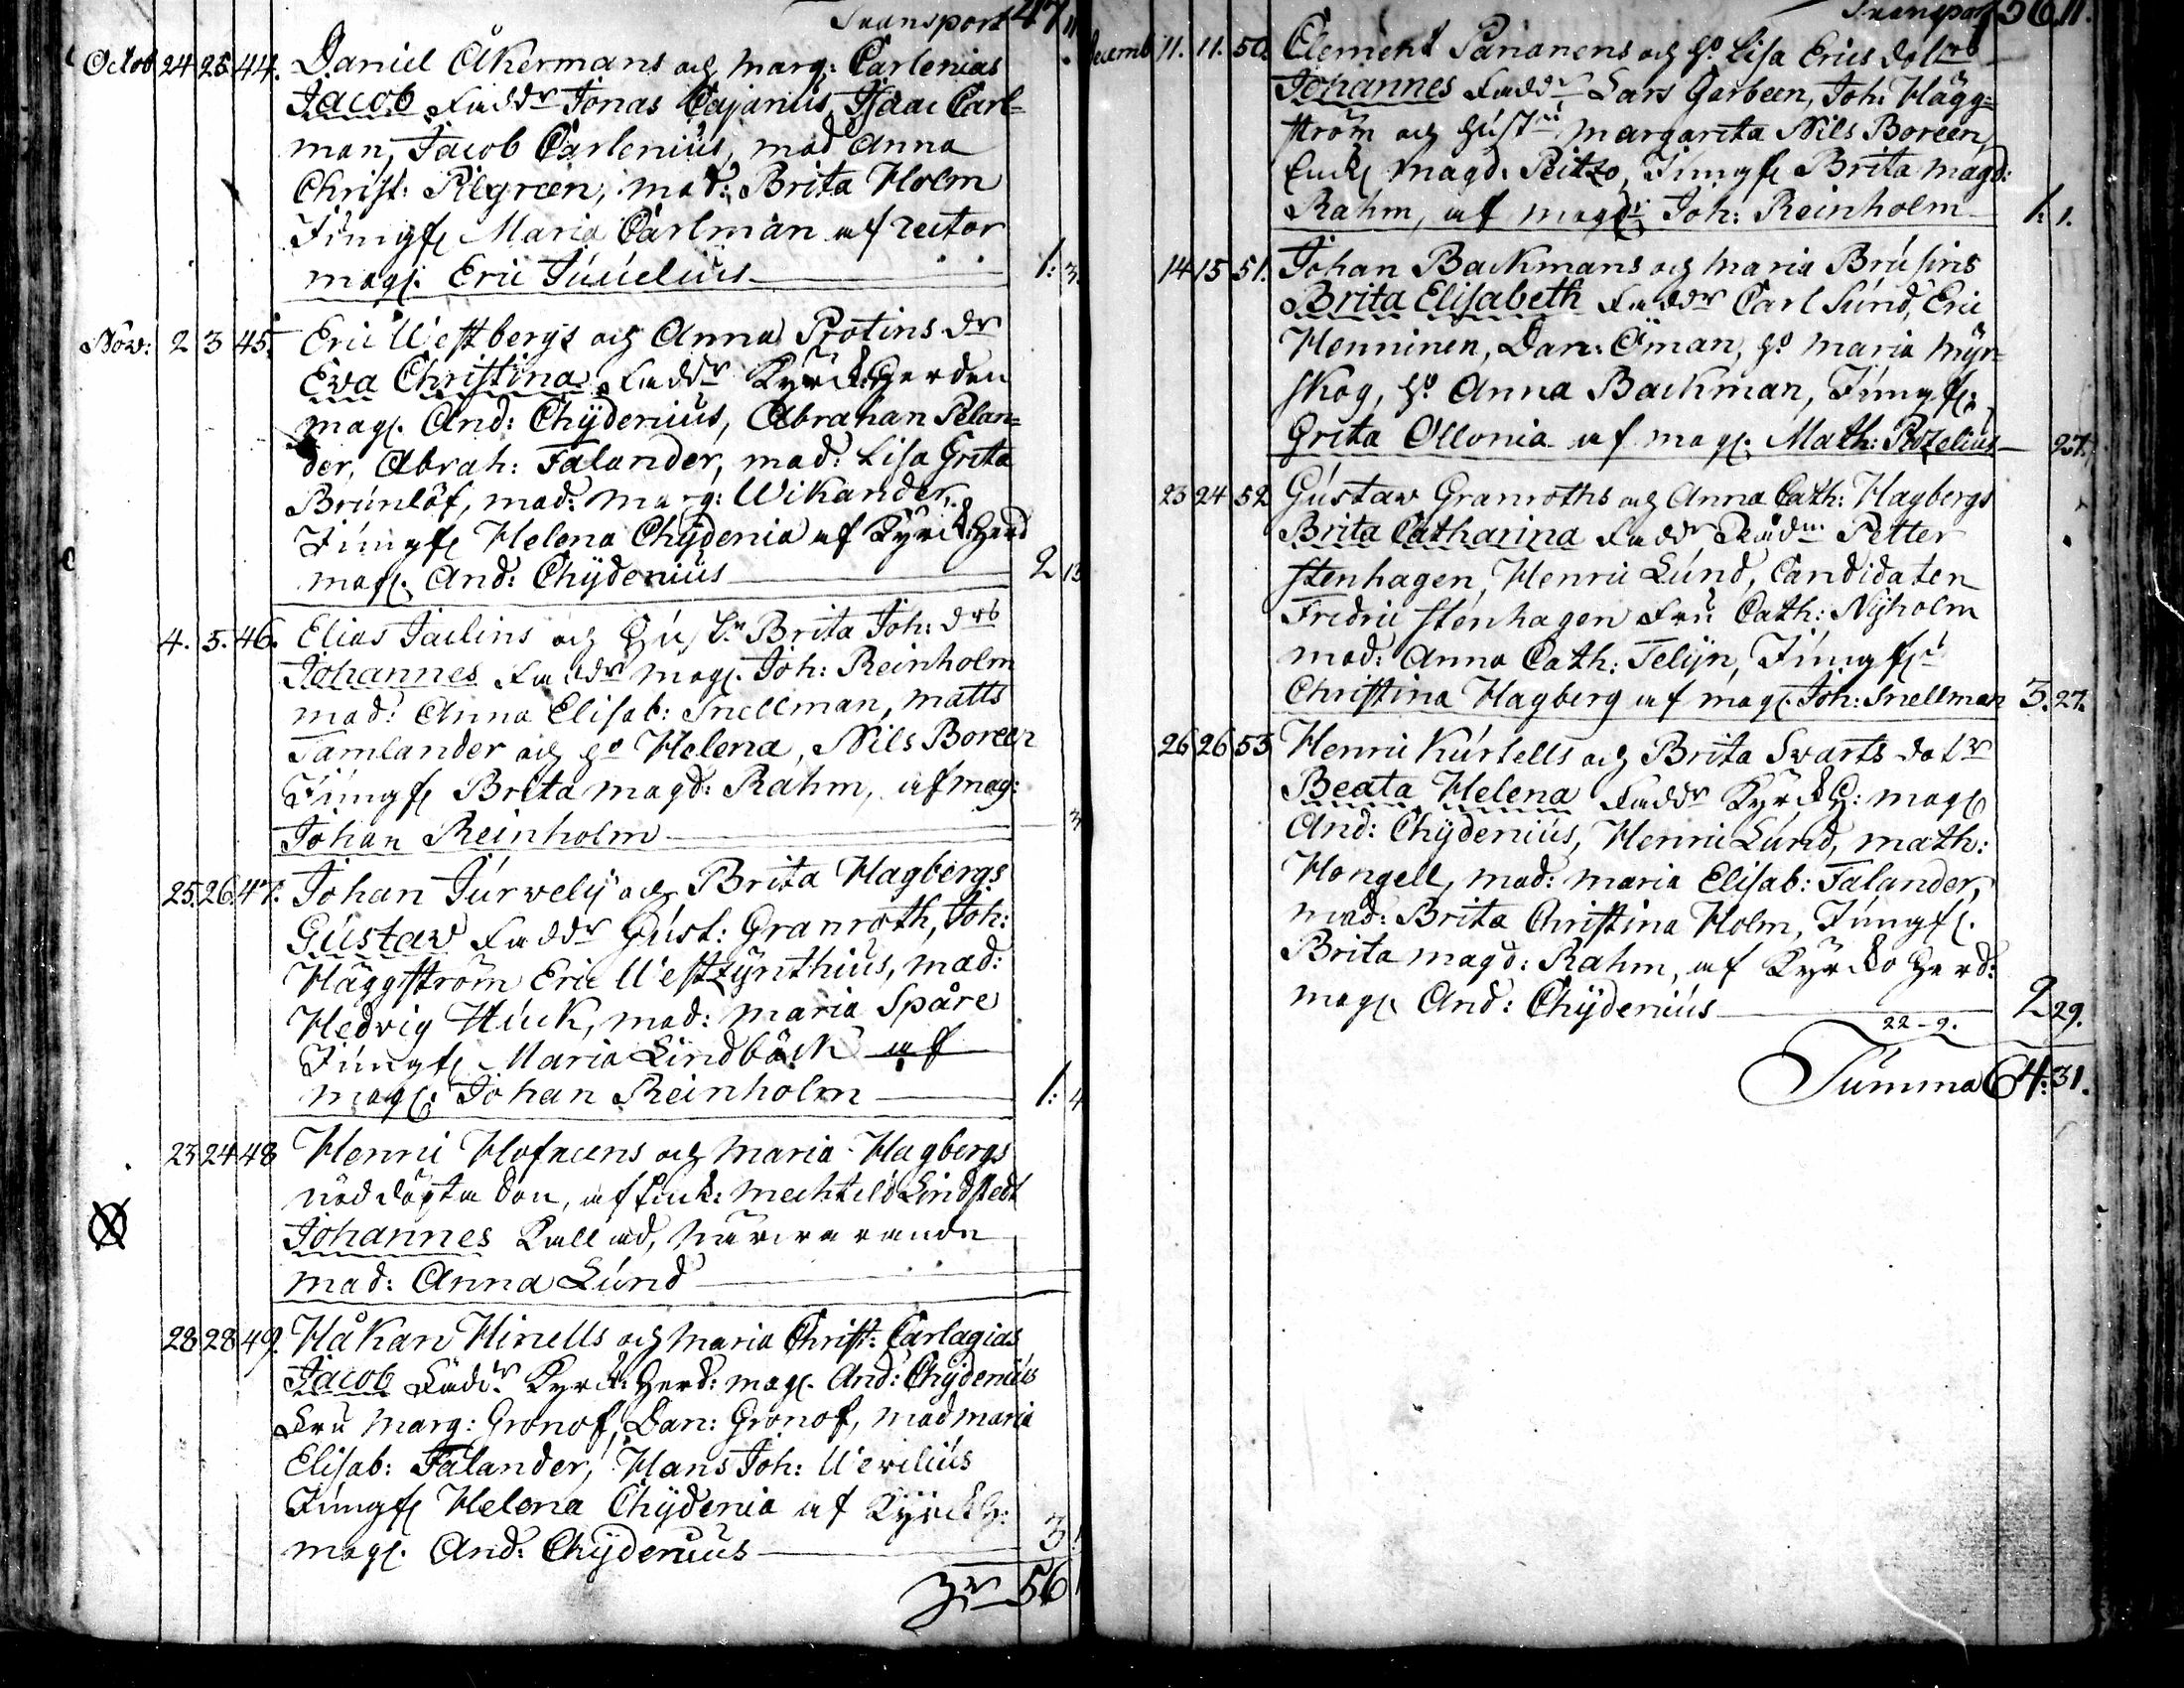 Transport 47 11
Octob 24 25 44. Daniel Åkermans och Marg: Carlenias
Jacob Faddr Jonas Cajanus, Isaac Carl=
man, Jacob Carlenius, mad Anna
Christ: Pilgreen, mad: Brita Holm
Jungf. Maria Carlman af rector
mag. Eric Juvelius 1: 3.
Nov: 2 3 45. Eric Westbergs och Anna Protins dr
Eva Christina Faddr Kyrckoherden
mag. And: Chÿdenius, Abraham Pelan=
der, Abrah: Falander, mad: Lisa Greta
Brunlöf, mad: Marg: Wikander,
Jungf. Helena Chÿdenia af Kyrckoherd
mag. And: Chÿdenius 2 13
4. 5. 46. Elias Jaclins och Hust. Brita Joh: drs
Johannes Faddr mag. Joh: Reinholm
mad: Anna Elisab: Snellman, Matts
Tamlander och ho Helena, Nils Boreen
Jungf. Brita Magd: Rahm, af mag:
Johan Reinholm 3
25. 26. 47. Johan Jurvelÿ och Brita Hagbergs
Gustav Faddr Gust: Granroth, Joh:
Häggström Eric Westzÿnthius, mad:
Hedvig Huck, mad: Maria Spåre
Jungf. Maria Lindbäck af
mag. Johan Reinholm 1: 4
23 24 48 Henric Hofreens och Maria Hagbergs
nöddöpta Son, af Enk: Mechtild Lindstedt
Johannes Kallad, närvarande
mad: Anna Lund
28 28 49. Håkan Hinells och Maria Christ: Carlagias
Jacob Faddr Kyrck: Herd: mag. And: Chÿdenius
Fru Marg: Gronof, Dan: Gronof, mad Maria
Elisab: Falander, Hans Joh: Werilius
Jungf. Helena Chÿdenia af Kyrckh:
mag. And: Chÿdenius 3
56
Transport 56 11.
Decemb 11. 11. 50. Clement Pananens och ho Lisa Erics dotrs
Johannes Faddr Lars Garbeen, Joh: Hägg=
ström och Hust. Margareta Nils Boreen,
Enck. Magd. Peitzo, Jungf. Brita Magd:
Rahm, af mag. Joh: Reinholm 1: 1.
14 15 51. Johan Backmans och Maria Brusins
Brita Elisabeth Faddr Carl Sund, Eric
Henninen, Dan: Öman, ho Maria Myr=
skog, ho Anna Backman, Jungf.
Greta Ollonia af mag. Math: Rozelius 27.
23 24 52 Gustav Granroths och Anna Cath: Hagbergs
Brita Catharina Faddr Rådm Petter
Stenhagen, Henric Lund, Candidaten
Fredric Stenhagen Fru Cath: Nyholm
mad: Anna Cath: Telijn, Jungf.
Christina Hagberg af mag. Joh: Snellman 3. 27.
26 26 53 Henric Kurtells och Brita Svarts dotr
Beata Helena Faddr Kyrckh: mag.
And: Chÿdenius, Henric Lund, Math:
Hongell, mad: Maria Elisab: Falander,
mad: Brita Christina Holm, Jungf.
Brita Magd: Rahm, af Kyrcko Herd:
mag. And: Chÿdenius 2 29.
22 - 9.
Summa 64: 31.